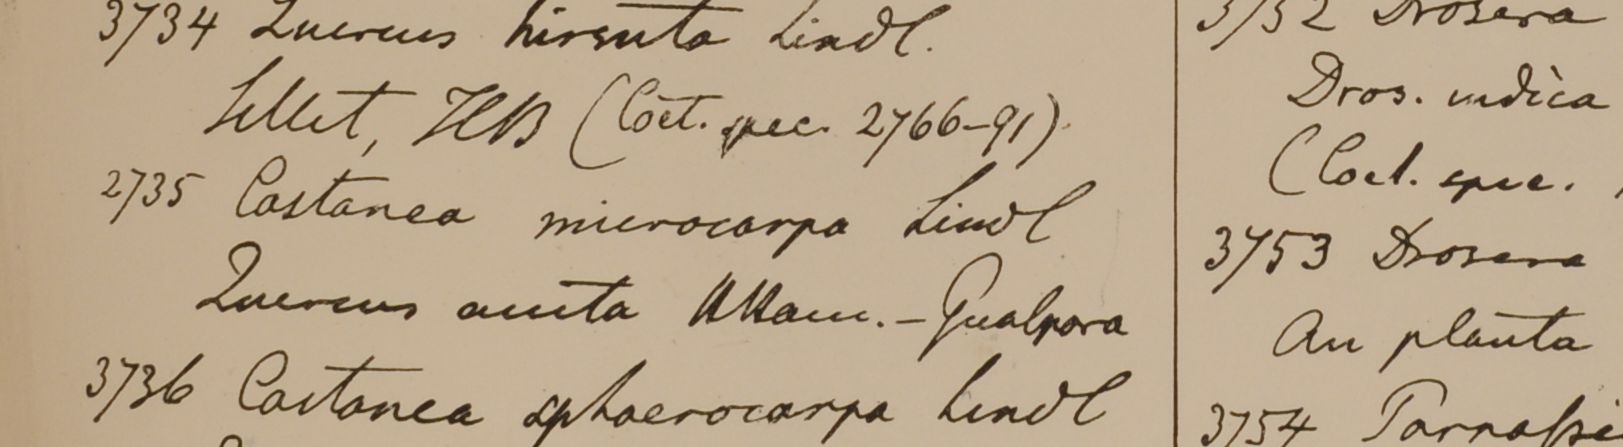 3734 Quercus hirsuta Lindl.
Sillet, HB (Coct. spec. 2766-91).
2735 Castanea microcarpa Lindl
Quercus Ham. - Gualpara
3736 Castanea sphaerocarpa Lindl
3752 Drosera
Dros. indica
(Coct. spec.
3753 Drosera
An planta
3754